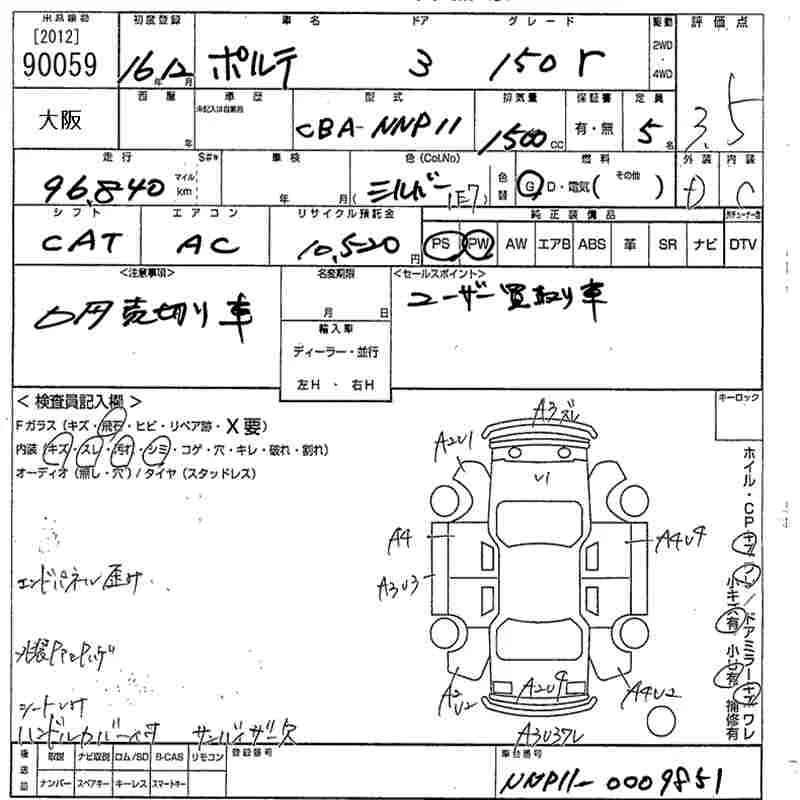 出品番号 初度登録 車名 ドア グレード 駆動 評価点
[2012]
90059 16年12月 ポルテ 3 150r 2WD・4WD
3.5
大阪 西暦 年 車歴 未記入は自家用 型式 排気量 保証書 定員
CBA-NNP11 1500cc 有・無 5名
走行 S## 車検 色(CoLNo) 色替 燃料 その他 外装 内装
96,840 マイル km 年 月 シルバー(1E7) G D・電気( ) D C
シフト エアコン リサイクル預託金 純正装備品
CAT AC 10,520円 PS PW AW エアB ABS 革 SR ナビ DTV
<注意事項> 名変期限 <セールスポイント>
0円売切り車 月 日 ユーザー買取り車
輸入車
ディーラー・並行
左H・右H
<検査員記入欄> キーロック
Fガラス(キズ・飛石・ヒビ・リペア跡・X要)
内装(キズ・スレ・汚れ・シミ・コゲ・穴・キレ・破れ・割れ)
オーディオ(無し・穴)/タイヤ(スタッドレス)
A3ズレ
A2U1
U1
A4 A4U4
A3U3
A2U2 A2U9 A4U2
A3U3ズレ
エンドパネル歪み
シート
ハンドルカバー付 サンバイザー欠
ホイル・CPキズワレ/ドアミラーキズワレ
小キズ有 小凹有 補修有
後送品 取説 ナビ取説 ロム/SD B-CAS リモコン 登録番号 車台番号
ナンバー スペアキー キーレス スマートキー NNP11-0009851